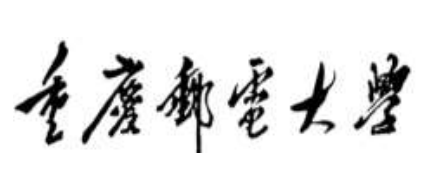 重慶郵電大學